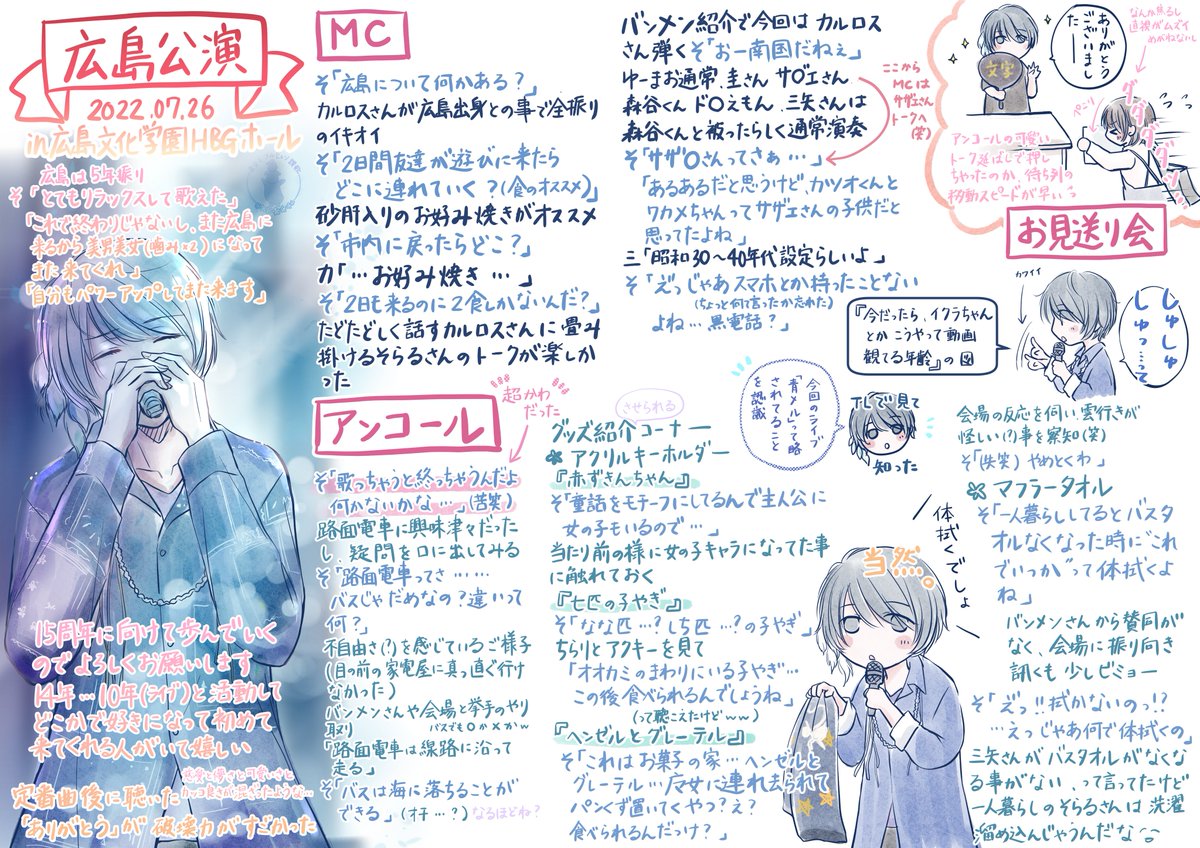 広島公演
2022.07.26
in広島文化学園HBGホール
広島は5年振り
そ「とてもリラックスして歌えた」
「これで終わりじゃないし、また広島に
来るから美男美女(噛み×2)になって
また来てくれ」
「自分もパワーアップしてまた来ます」
15周年に向けて歩んでいく
のでよろしくお願いします
14年…10年(ライブ)と活動して
どこかで好きになって初めて
来てくれる人がいて嬉しい
定番曲後に聴いた
「ありがとう」が破壊力がすごかった
MC
そ「広島について何かある?」
カルロスさんが広島出身との事で全振り
のイキオイ
そ「2日間友達が遊びに来たら
どこに連れていく?(食のオススメ)」
砂肝入りのお好み焼きがオススメ
そ「市内に戻ったらどこ?」
カ「…お好み焼き…」
そ「2日も来るのに2食しかないんだ?」
たどたどしく話すカルロスさんに畳み
掛けるそらるさんのトークが楽しか
った
アンコール
超かわ
だった
そ「歌っちゃうと終っちゃうんだよ
何かないかな…」(苦笑)
路面電車に興味津々だった
し、疑問を口に出してみる
そ「路面電車ってさ……
バスじゃだめなの?違いって
何?」
不自由さ(?)を感じているご様子
(目の前の家電屋に真っ直ぐ行け
なかった)
バンメンさんや会場と挙手のやり
取り
バスでも○か×かw
「路面電車は線路に沿って
走る」
そ「バスは海に落ちることが
できる」(オチ…?)
なるほどね?
バンメン紹介で今回はカルロス
さん弾く そ「おー南国だねぇ」
ゆーまお通常、圭さん サザエさん
森谷くんド○えもん、三矢さんは
森谷くんと被ったらしく通常演奏
ここから
MCは
サザエさん
トークへ
(笑)
そ「サザ○さんってさぁ…」
「あるあるだと思うけど、カツオくんと
ワカメちゃんってサザエさんの子供だと
思ってたよね」
三「昭和30〜40年代設定らしいよ」
そ「えっじゃあスマホとか持ったことない
(ちょっと何て言ったか忘れた)
よね…黒電話?」
『今だったら、イクラちゃん
とかこうやって動画
観てる年齢』の図
カワイイ
しゅしゅ
しゅっ…って
会場の反応を伺い、雲行きが
怪しい(?)事を察知(笑)
そ「(失笑)やめとくわ」
させられる
グッズ紹介コーナー
アクリルキーホルダー
『赤ずきんちゃん』
そ「童話をモチーフにしてるんで主人公に
女の子もいるので…」
当たり前の様に女の子キャラになってた事
に触れておく
『七匹の子やぎ』
そ「なな匹…?しち匹…?の子やぎ」
ちらりとアクキーを見て
「オオカミのまわりにいる子やぎ…
この後食べられるんでしょうね」
(って聴こえたけどww)
『ヘンゼルとグレーテル』
そ「これはお菓子の家…ヘンゼルと
グレーテル…魔女に連れ去られて
パンくず置いてくやつ?え?
食べられるんだっけ?」
今回のライブ
「青メル」って略
されてることを
を認識
TLで見て
知った
マフラータオル
そ「一人暮らししてるとバスタ
オルなくなった時に"これ
でいっか"って体拭くよ
ね」
バンメンさんから賛同が
なく、会場に振り向き
訊くも少しビミョー
そ「えっ!!拭かないのっ!?
…えっじゃあ何で体拭くの」
三矢さんがバスタオルがなくな
る事がない、って言ってたけど
一人暮らしのそらるさんは洗濯
溜め込んじゃうんだな
体拭くでしょ
当然。
お見送り会
ありがとう
ございまし
たー
文字
なんか焦るし
直視がムズイ
めがねないし
ペこり
グダグダダン
アンコールの可愛い
トーク延ばしで押し
ちゃったのか、待ち列の
移動スピードが早いっ